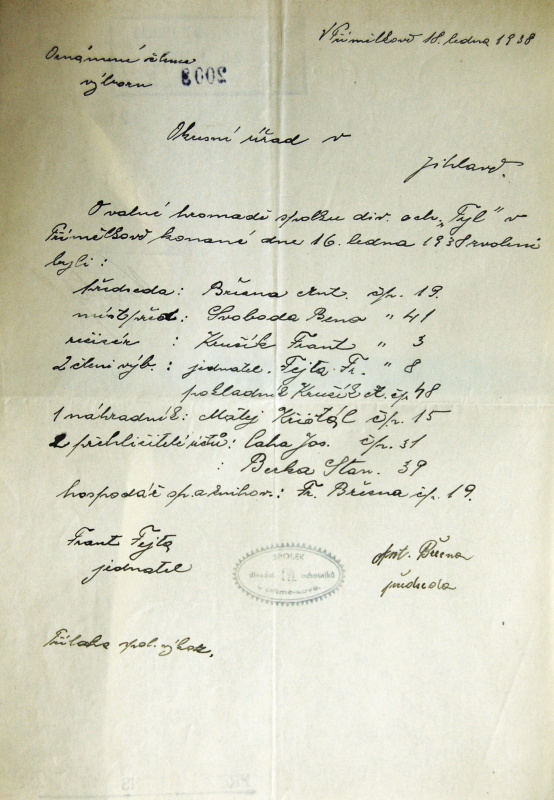 V Přímělkově 18. ledna 1938
Oznámení členů
výboru
2003
Okresní úřad v
Jihlavě.
O valné hromadě spolku div. och. „Tyl“ v
Přímělkově konané dne 16. ledna 1938 zvoleni
byli :
předseda : Března Ant. čp. 19.
místpřed : Svoboda Bena " 41
režisér : Kručík Frant " 3
2 členi výb. : jednatel. Fejta Fr. " 8
pokladník Kručík A. čp 48
1 náhradník : Matěj Křištál čp. 15
2 přehližitelé účtů : Caha Jos. čp. 31
: Berka Stan. 39
hospodář sp. a knihov. : Fr. Března čp. 19.
Frant Fejta
jednatel
Ant. Března
předseda
SPOLEK
divadel. ochotníků
Příloha spol. výkaz.